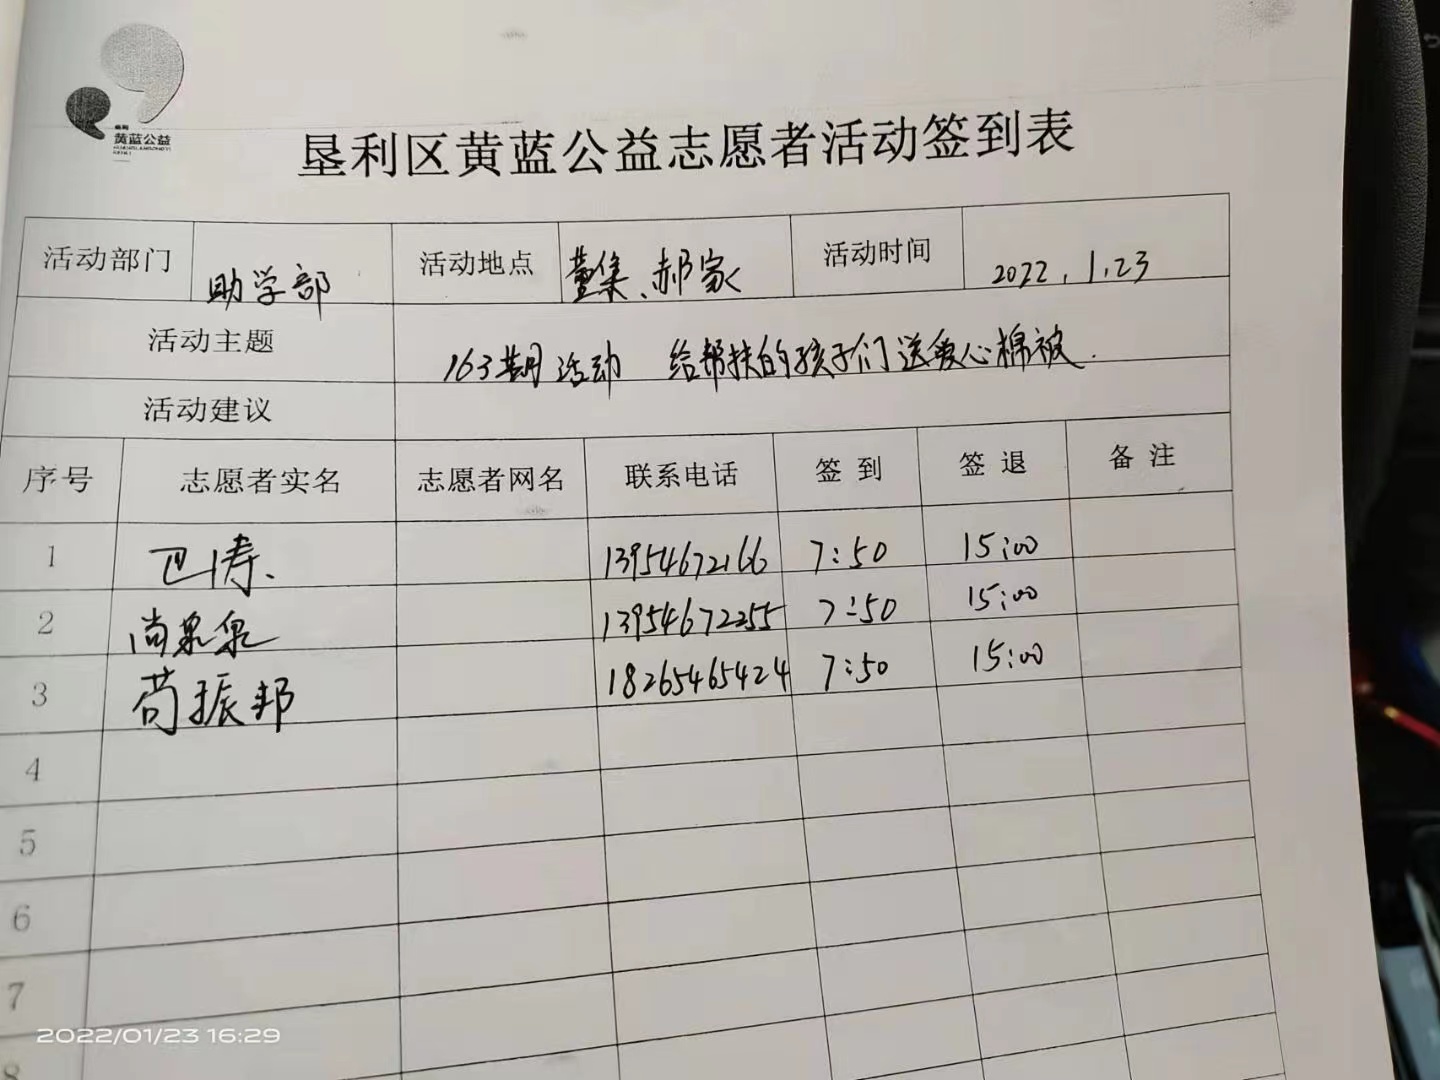 垦利
黄蓝公益
垦利区黄蓝公益志愿者活动签到表
活动部门 助学部 活动地点 董集、郝家 活动时间 2022.1.23
活动主题 163期活动 给帮扶的孩子们送爱心棉被.
活动建议
序号 志愿者实名 志愿者网名 联系电话 签 到 签 退 备 注
1 涛. 13954672166 7:50 15:00
2 尚泉泉 13954672255 7:50 15:00
3 苟振邦 18265465424 7:50 15:00
4
5
6
7
8
2022/01/23 16:29